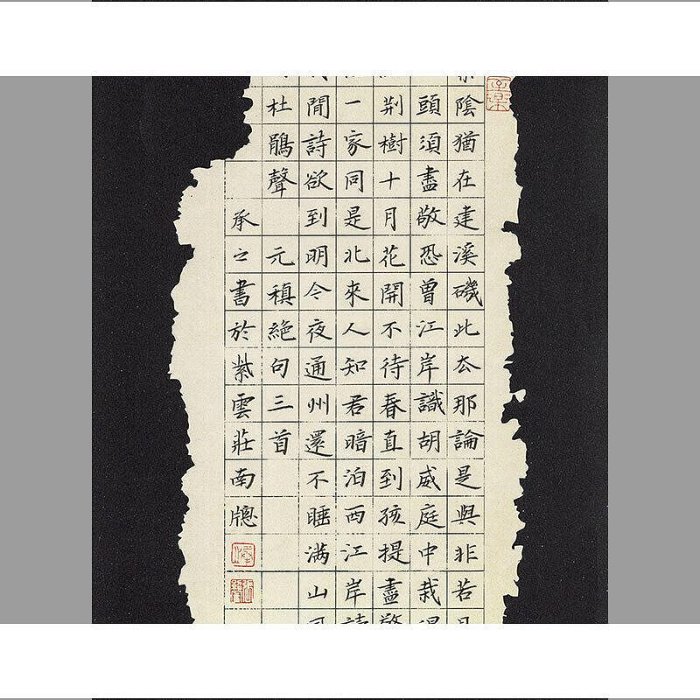 陰猶在建溪磯此去那論是與非若
頭須盡敬恐曾江岸識胡威庭中栽
荊樹十月花開不待春直到孩提盡
一家同是北來人知君暗泊西江岸
閒詩欲到明今夜通州還不睡滿山
杜鵑聲 元稹絕句三首
承之書於紫雲莊南牕